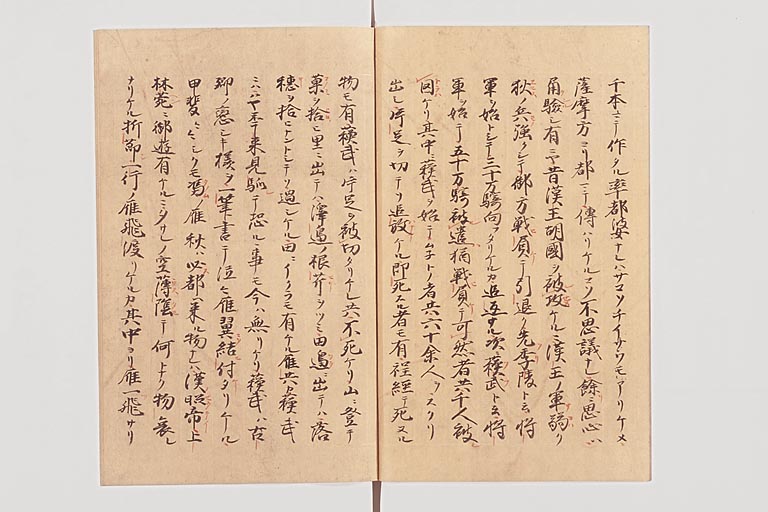 千本ニテ作タル率都婆ナレハサコソチイサウモアリケメ
薩摩方ヨリ都マテ傳ハリケルコソ不思議ナレ餘ニ思心ハ
角驗シ有ニヤ昔漢王胡國ヲ被攻ケルニ漢王ノ軍弱ク
狄ノ兵強クシテ御方戰負テ引退ク先李陵ト云將
軍ヲ始トシテ三十万騎向ヲタリケルカ追返サル次蘓武ト云將
軍ヲ始テ五十万騎被遣猶戰負テ可然者共六千人被
囚ケリ其中ニ蘓武ヲ始テムネトノ者共六百六十余人ヲスクリ
出シ片足ヲ切テソ追放ケル即死スル者モ有程經テ死スル
物モ有蘓武ハ片足ヲ被切タリケレ共不死ケリ山ニ登テ
菓ヲ拾ヒ里ニ出テハ澤邊ノ根芹ヲツミ田邊ニ出テハ落
穗ヲ拾ヒナントシテソ過シケル田ニイクラモ有ケル雁共カ蘓武
ニハハヤ来見馴テ恐ル事モ今ハ無リケリ蘓武ハ古
郷ノ戀シキ樣ヲ一筆書テ泣々雁翼結付タリケル
甲斐々々シクモ鴈ノ雁秋ハ必都ヘ来ル物ナレハ漢昭帝上
林苑ニ御遊有ケルニ夕サレノ空薄陰テ何トナク物哀レ
ナリケル折節一行ノ雁飛渡リケルカ其中ヨリ雁一飛サリ